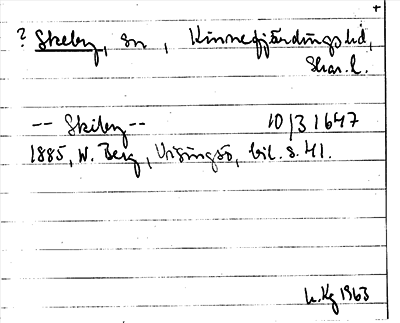 +
? Skeby, sn, Kinnefjärdings hd,
Skar. l.
-- Skiby -- 10/3 1647
1885, W. Berg, Visingsö, bil. s. 41.
h. Kg 1963